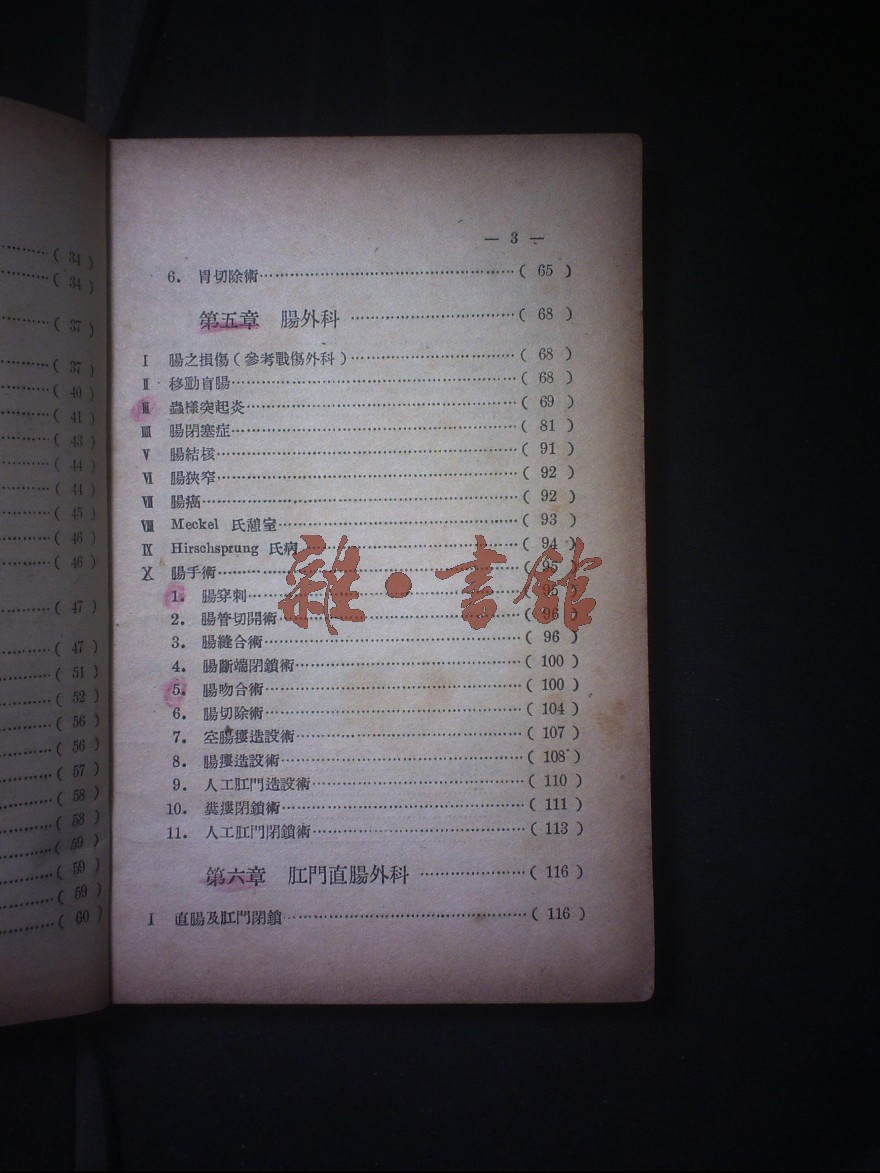 ( 34 )
( 34 )
( 37 )
( 37 )
( 40 )
( 41 )
( 43 )
( 44 )
( 44 )
( 45 )
( 46 )
( 46 )
( 47 )
( 47 )
( 51 )
( 52 )
( 56 )
( 56 )
( 57 )
( 58 )
( 58 )
( 59 )
( 59 )
( 59 )
( 60 )
— 3 —
6. 胃切除術……………( 65 )
第五章 腸外科……………( 68 )
I 腸之損傷(參考戰傷外科)……………( 68 )
II 移動盲腸……………( 68 )
III 蟲樣突起炎……………( 69 )
IIII 腸閉塞症……………( 81 )
V 腸結核……………( 91 )
VI 腸狹窄……………( 92 )
VII 腸癌……………( 92 )
VIII Meckel 氏憩室……………( 93 )
IX Hirschsprung 氏病……………( 94 )
X 腸手術……………( 95 )
1. 腸穿刺……………( 95 )
2. 腸管切開術……………( 96 )
3. 腸縫合術……………( 96 )
4. 腸斷端閉鎖術……………( 100 )
5. 腸吻合術……………( 100 )
6. 腸切除術……………( 104 )
7. 空腸瘻造設術……………( 107 )
8. 腸瘻造設術……………( 108 )
9. 人工肛門造設術……………( 110 )
10. 糞瘻閉鎖術……………( 111 )
11. 人工肛門閉鎖術……………( 113 )
第六章 肛門直腸外科……………( 116 )
I 直腸及肛門閉鎖……………( 116 )
雜·書館